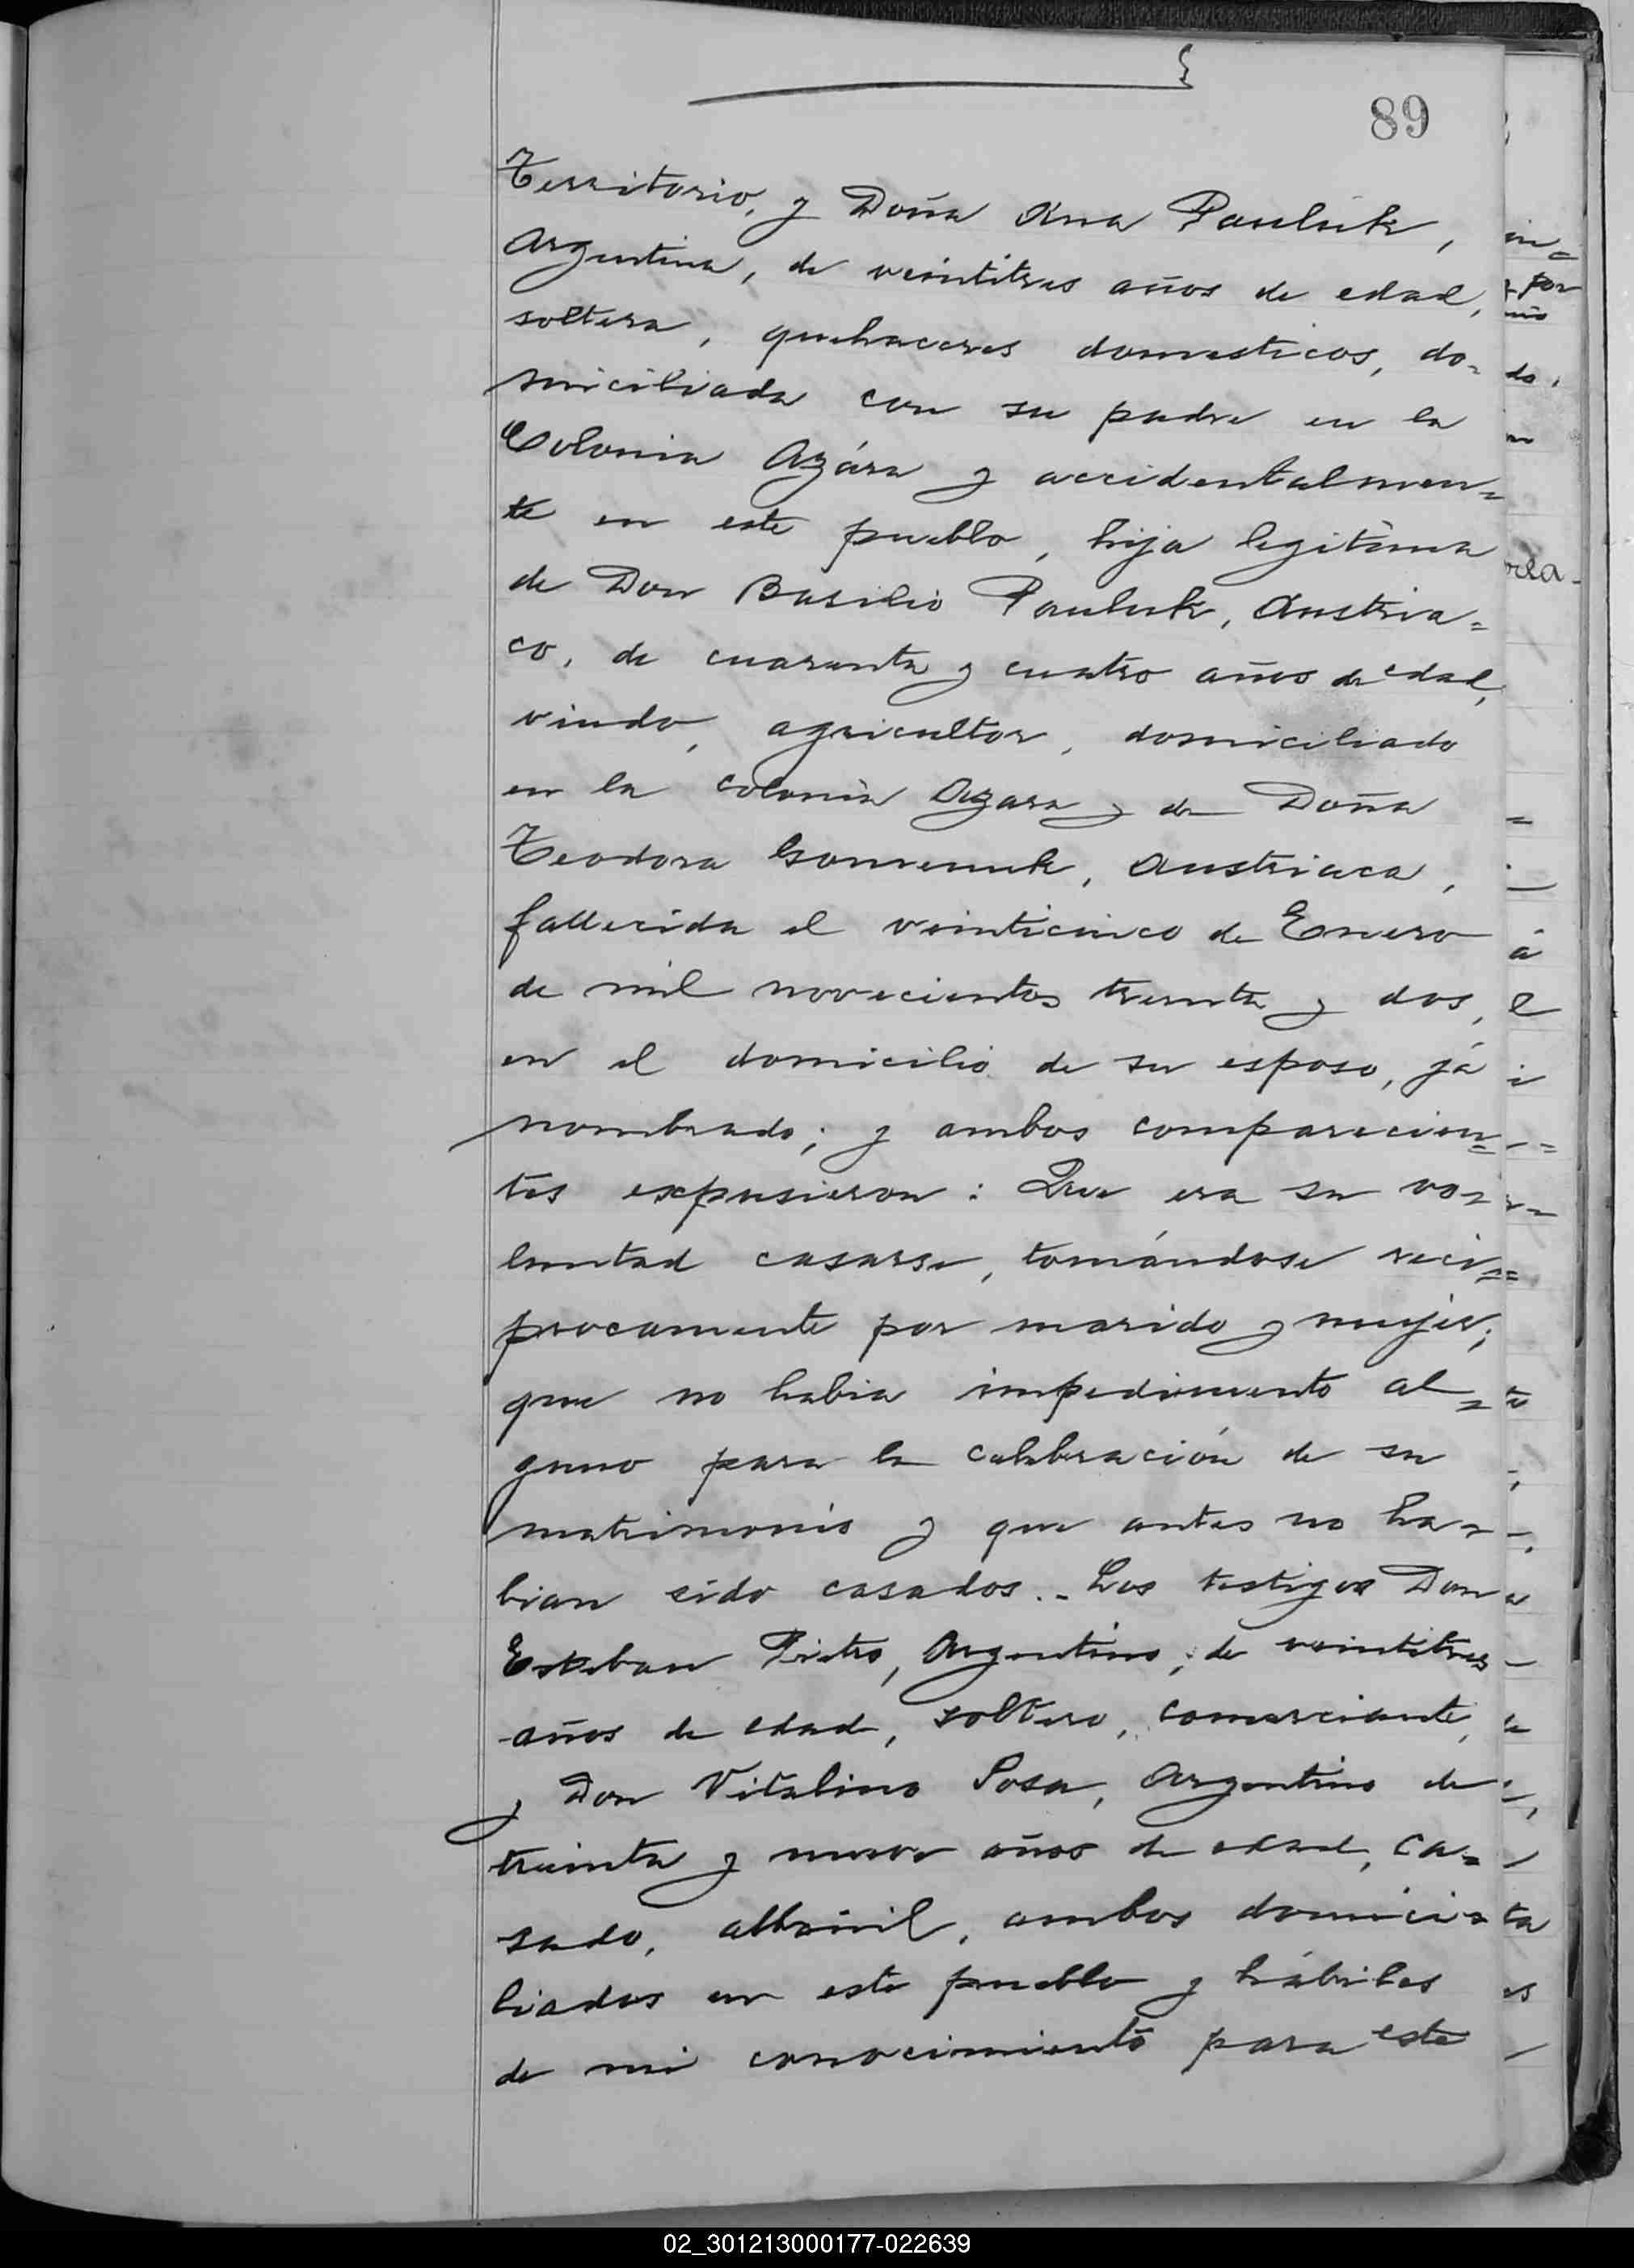 89
Territorio, y Doña Ana Pauluk,
Argentina, de veintitres años de edad,
soltera, quehaceres domesticos, do-
miciliada con su padre en la
Colonia Azára y accidentalmen=
te en este pueblo, hija legitima
de Don Basilio Pauluk, Austria=
co, de cuarenta y cuatro años de edad,
viudo, agricultor, domiciliado
en la colonia Azara y de Doña
Teodora, Austriaca,
fallecida el veinticinco de Enero
de mil novecientos treinta y dos,
en el domicilio de su esposo, já
nombrado; y ambos comparecien=
tes expusieron: Que era su vo-
luntad casarse, tomándose reci=
procamente por marido y mujer;
que no habia impedimento al=
guno para la celebración de su
matrimonio y que antes no ha-
bian sido casados.- Los testigos Don
Esteban, Argentino, de veintitres
años de edad, soltero, comerciante,
y Don Vitalino Sosa, Argentino de
treinta y nueve años de edad, ca=
sado, albañil, ambos domici=
liados en este pueblo y hábiles
de mi conocimiento para este
02_301213000177-022639